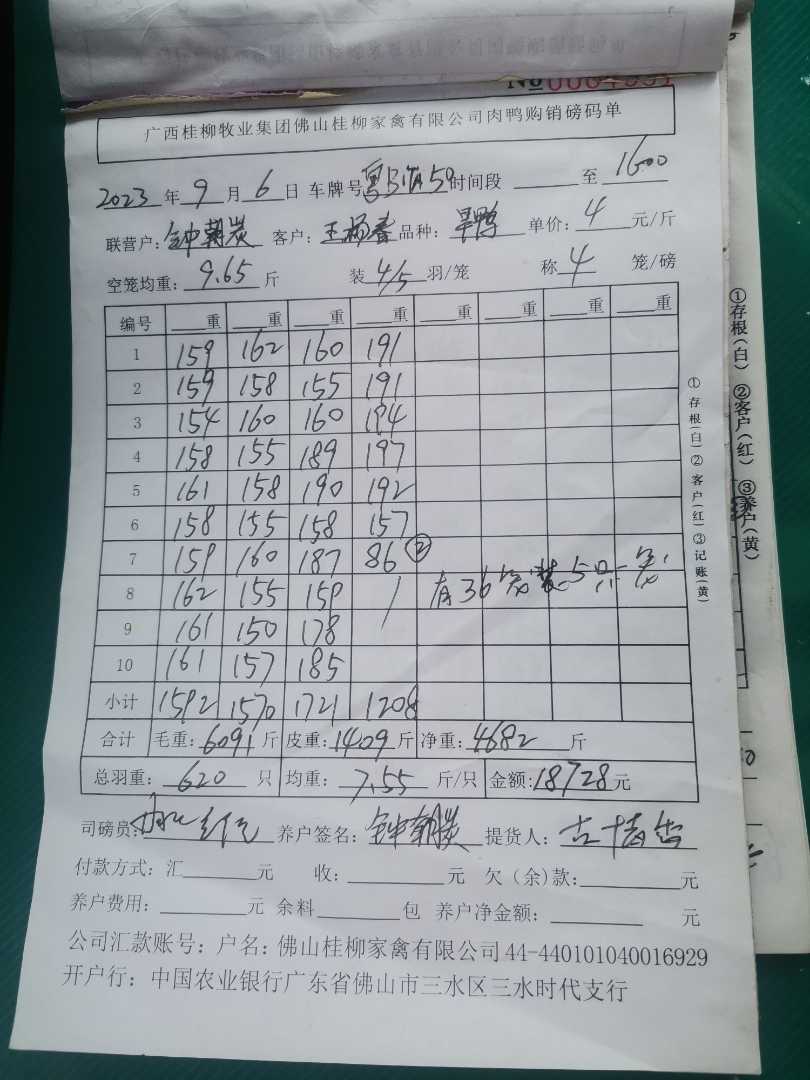 广西桂柳牧业集团佛山桂柳家禽有限公司肉鸭购销磅码单
2023 年 9 月 6 日 车牌号 时间段 至 1600
联营户: 钟朝炭 客户: 王杨春 品种: 旱鸭 单价: 4 元/斤
空笼均重: 9.65 斤 装 4/5 羽/笼 称 4 笼/磅
编号 重 重 重 重 重 重 重 重
1 159 162 160 191
2 159 158 155 191
3 154 160 160 194
4 158 155 189 197
5 161 158 190 192
6 158 155 158 157
7 159 160 187 86 ②
8 162 155 159 / 有36笼装5只一笼
9 161 150 178
10 161 157 185
小计 1592 1570 1721 1208
合计 毛重: 6091 斤 皮重: 1409 斤 净重: 4682 斤
总羽重: 620 只 均重: 7.55 斤/只 金额: 18728 元
司磅员: 养户签名: 钟朝炭 提货人:
付款方式: 汇 元 收: 元 欠(余)款: 元
养户费用: 元 余料 包 养户净金额: 元
公司汇款账号: 户名: 佛山桂柳家禽有限公司 44-440101040016929
开户行: 中国农业银行广东省佛山市三水区三水时代支行
①存根(白) ②客户(红) ③记账(黄)
①存根(白) ②客户(红) ③养户(黄)